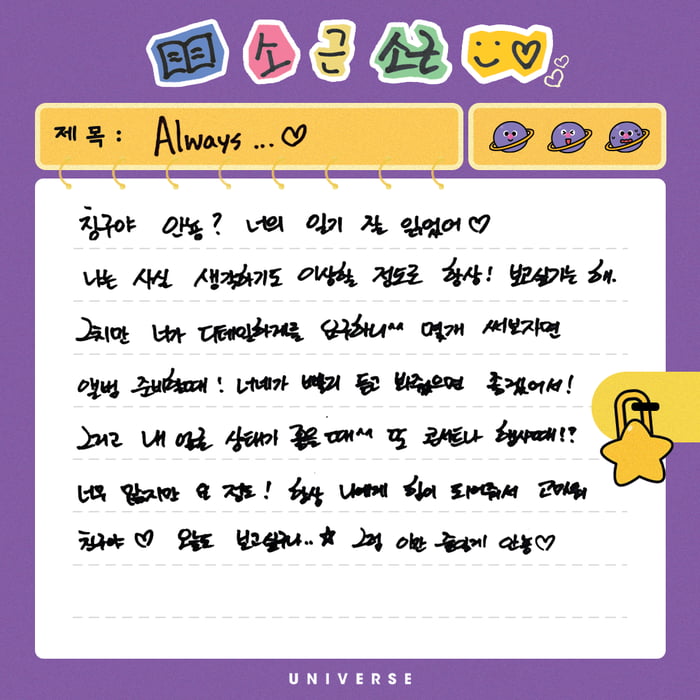 소 근 소근
제 목 : Always ... ♡
친구야 안뇽? 너의 일기 잘 읽었어♡
나는 사실 생각하기도 이상할 정도로 항상! 보고싶기는 해.
그치만 너가 디테일하게를 요구하니^^ 몇개 써보자면
앨범 준비할때! 너네가 빨리 듣고 봐줬으면 좋겠어서!
그리고 내 얼굴 상태가 좋을 때~ 또 콘서트나 행사때!?
너무 많지만 요 정도! 항상 나에게 힘이 되어줘서 고마워
친구야 ♡ 오늘도 보고싶구나..☆ 그럼 이만 즐겁게 안뇽♡
UNIVERSE